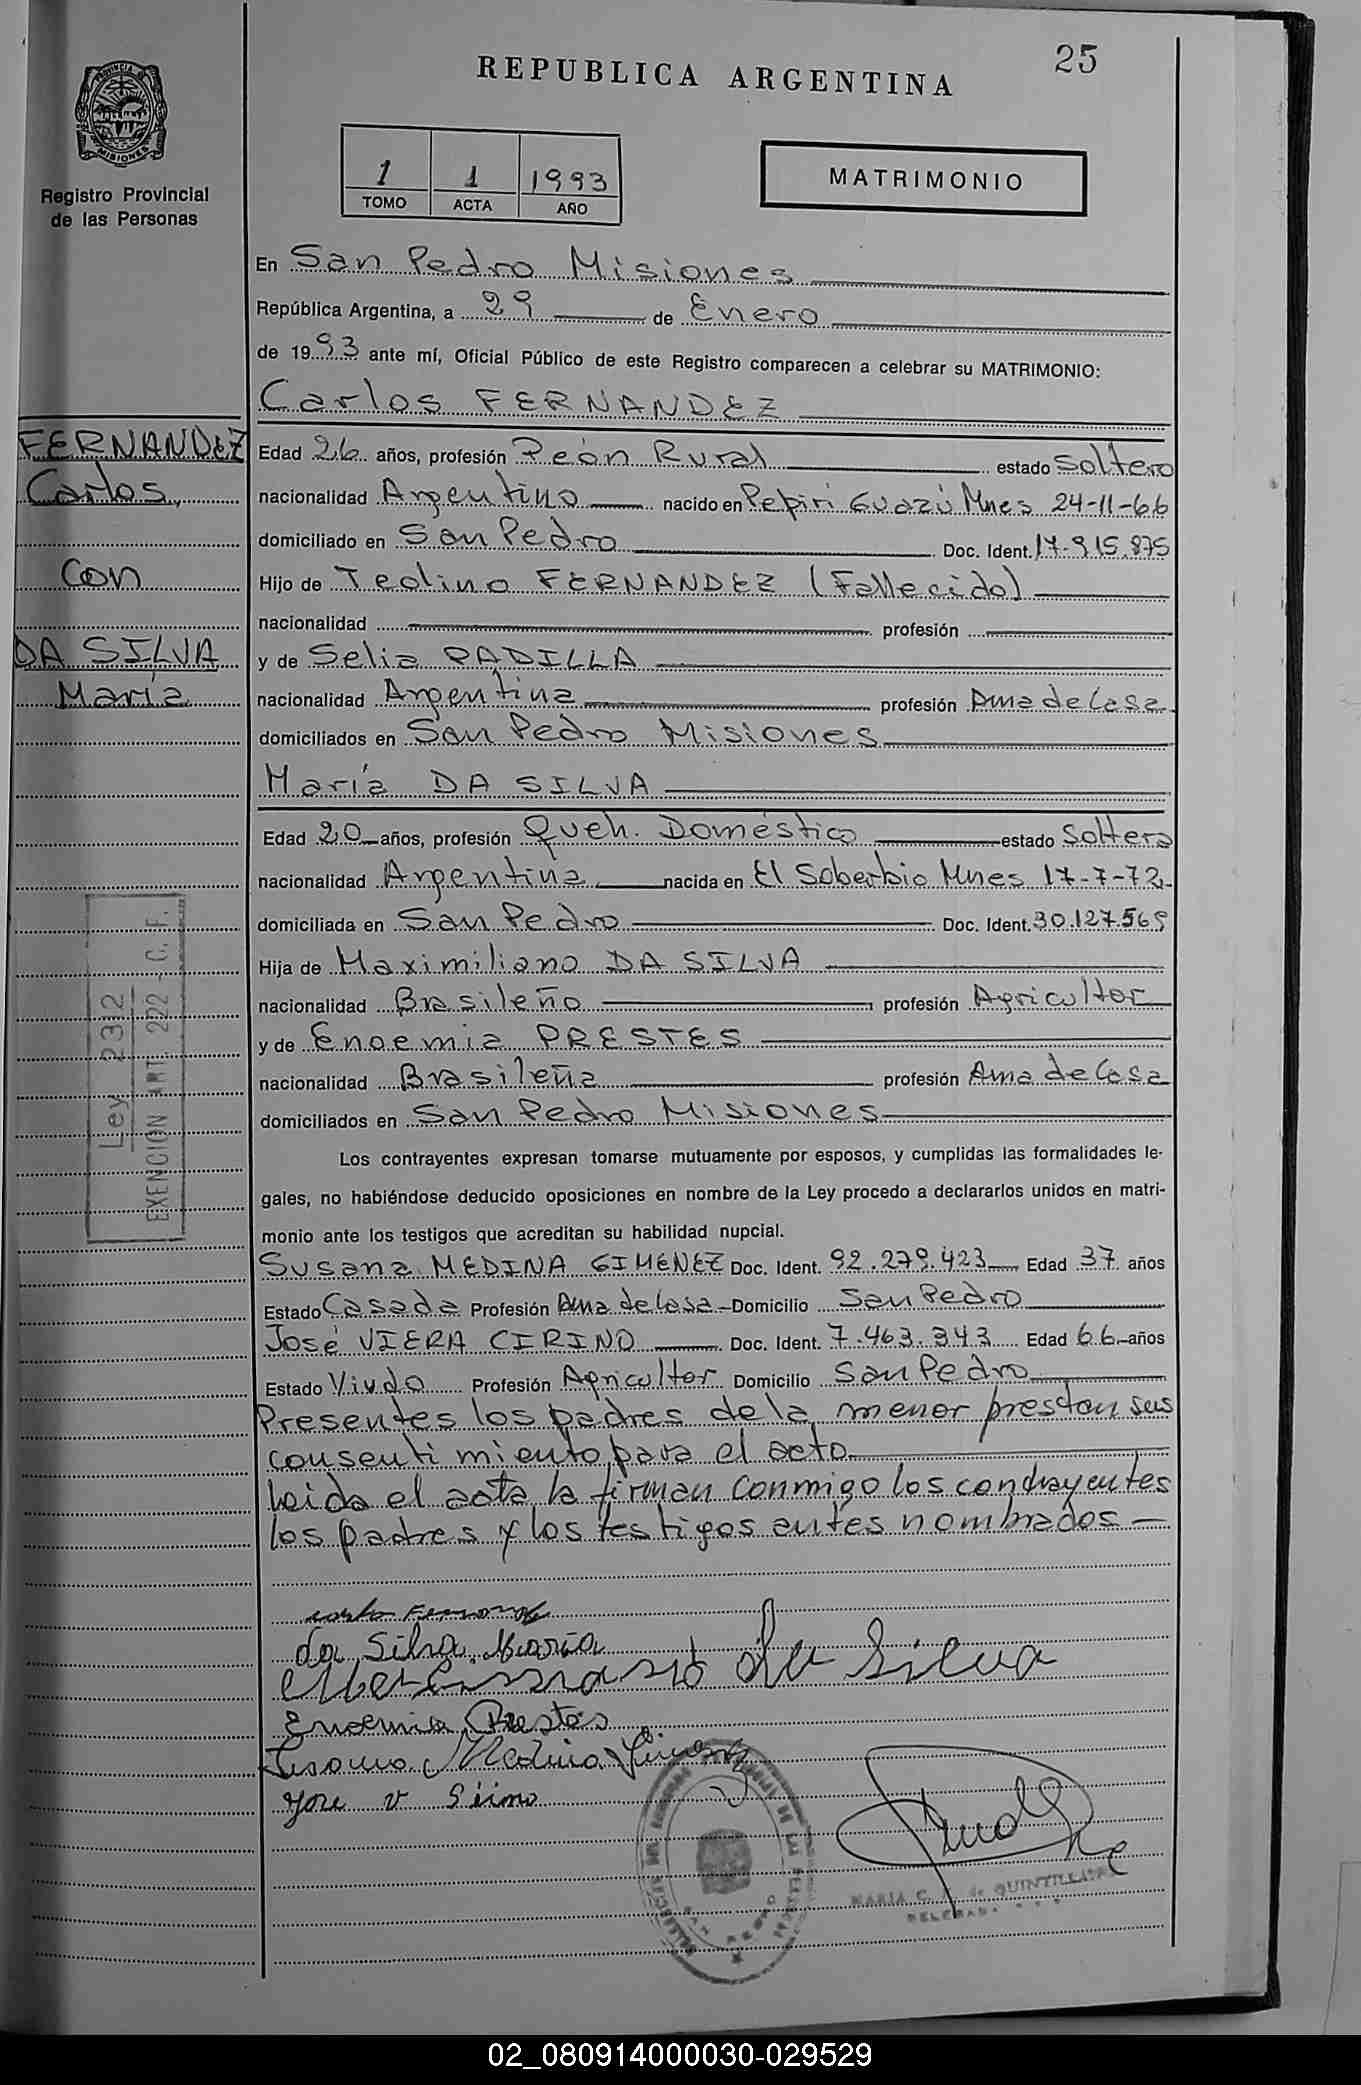 25
REPUBLICA ARGENTINA
PROVINCIA DE
MISIONES
Registro Provincial
de las Personas
1 1 1993
TOMO ACTA AÑO
MATRIMONIO
En San Pedro Misiones
República Argentina, a 29 de Enero
de 1993 ante mí, Oficial Público de este Registro comparecen a celebrar su MATRIMONIO:
Carlos FERNANDEZ
FERNANDEZ
Carlos,
con
DA SILVA
María
Edad 26 años, profesión Peón Rural estado Soltero
nacionalidad Argentino nacido en Pepirí Guazú Mnes 24-11-66
domiciliado en San Pedro Doc. Ident. 17.915.875
Hijo de Teolino FERNANDEZ (Fallecido)
nacionalidad profesión
y de Selia PADILLA
nacionalidad Argentina profesión Ama de Casa
domiciliados en San Pedro Misiones
María DA SILVA
Edad 20 años, profesión Queh. Doméstico estado Soltera
nacionalidad Argentina nacida en El Soberbio Mnes 17-7-72
domiciliada en San Pedro Doc. Ident. 30.127.569
Hija de Maximiliano DA SILVA
nacionalidad Brasileño profesión Agricultor
y de Enoemia PRESTES
nacionalidad Brasileña profesión Ama de Casa
domiciliados en San Pedro Misiones
Ley 2312
EXENCION ART. 222 - C. F.
Los contrayentes expresan tomarse mutuamente por esposos, y cumplidas las formalidades le-
gales, no habiéndose deducido oposiciones en nombre de la Ley procedo a declararlos unidos en matri-
monio ante los testigos que acreditan su habilidad nupcial.
Susana MEDINA GIMENEZ Doc. Ident. 92.279.423 Edad 37 años
Estado Casada Profesión Ama de Casa Domicilio San Pedro
José VIERA CIRINO Doc. Ident. 7.463.343 Edad 66 años
Estado Viudo Profesión Agricultor Domicilio San Pedro
Presentes los padres de la menor prestan sus
consentimiento para el acto
Leida el acta la firman conmigo los contrayentes
los padres y los testigos antes nombrados
da Silva María
da Silva
Enoemia Prestes
Susana Medina Gimenez
Jose V
MARIA C. de QUINTILLAN
DELEGADA
SAN PEDRO
02_080914000030-029529